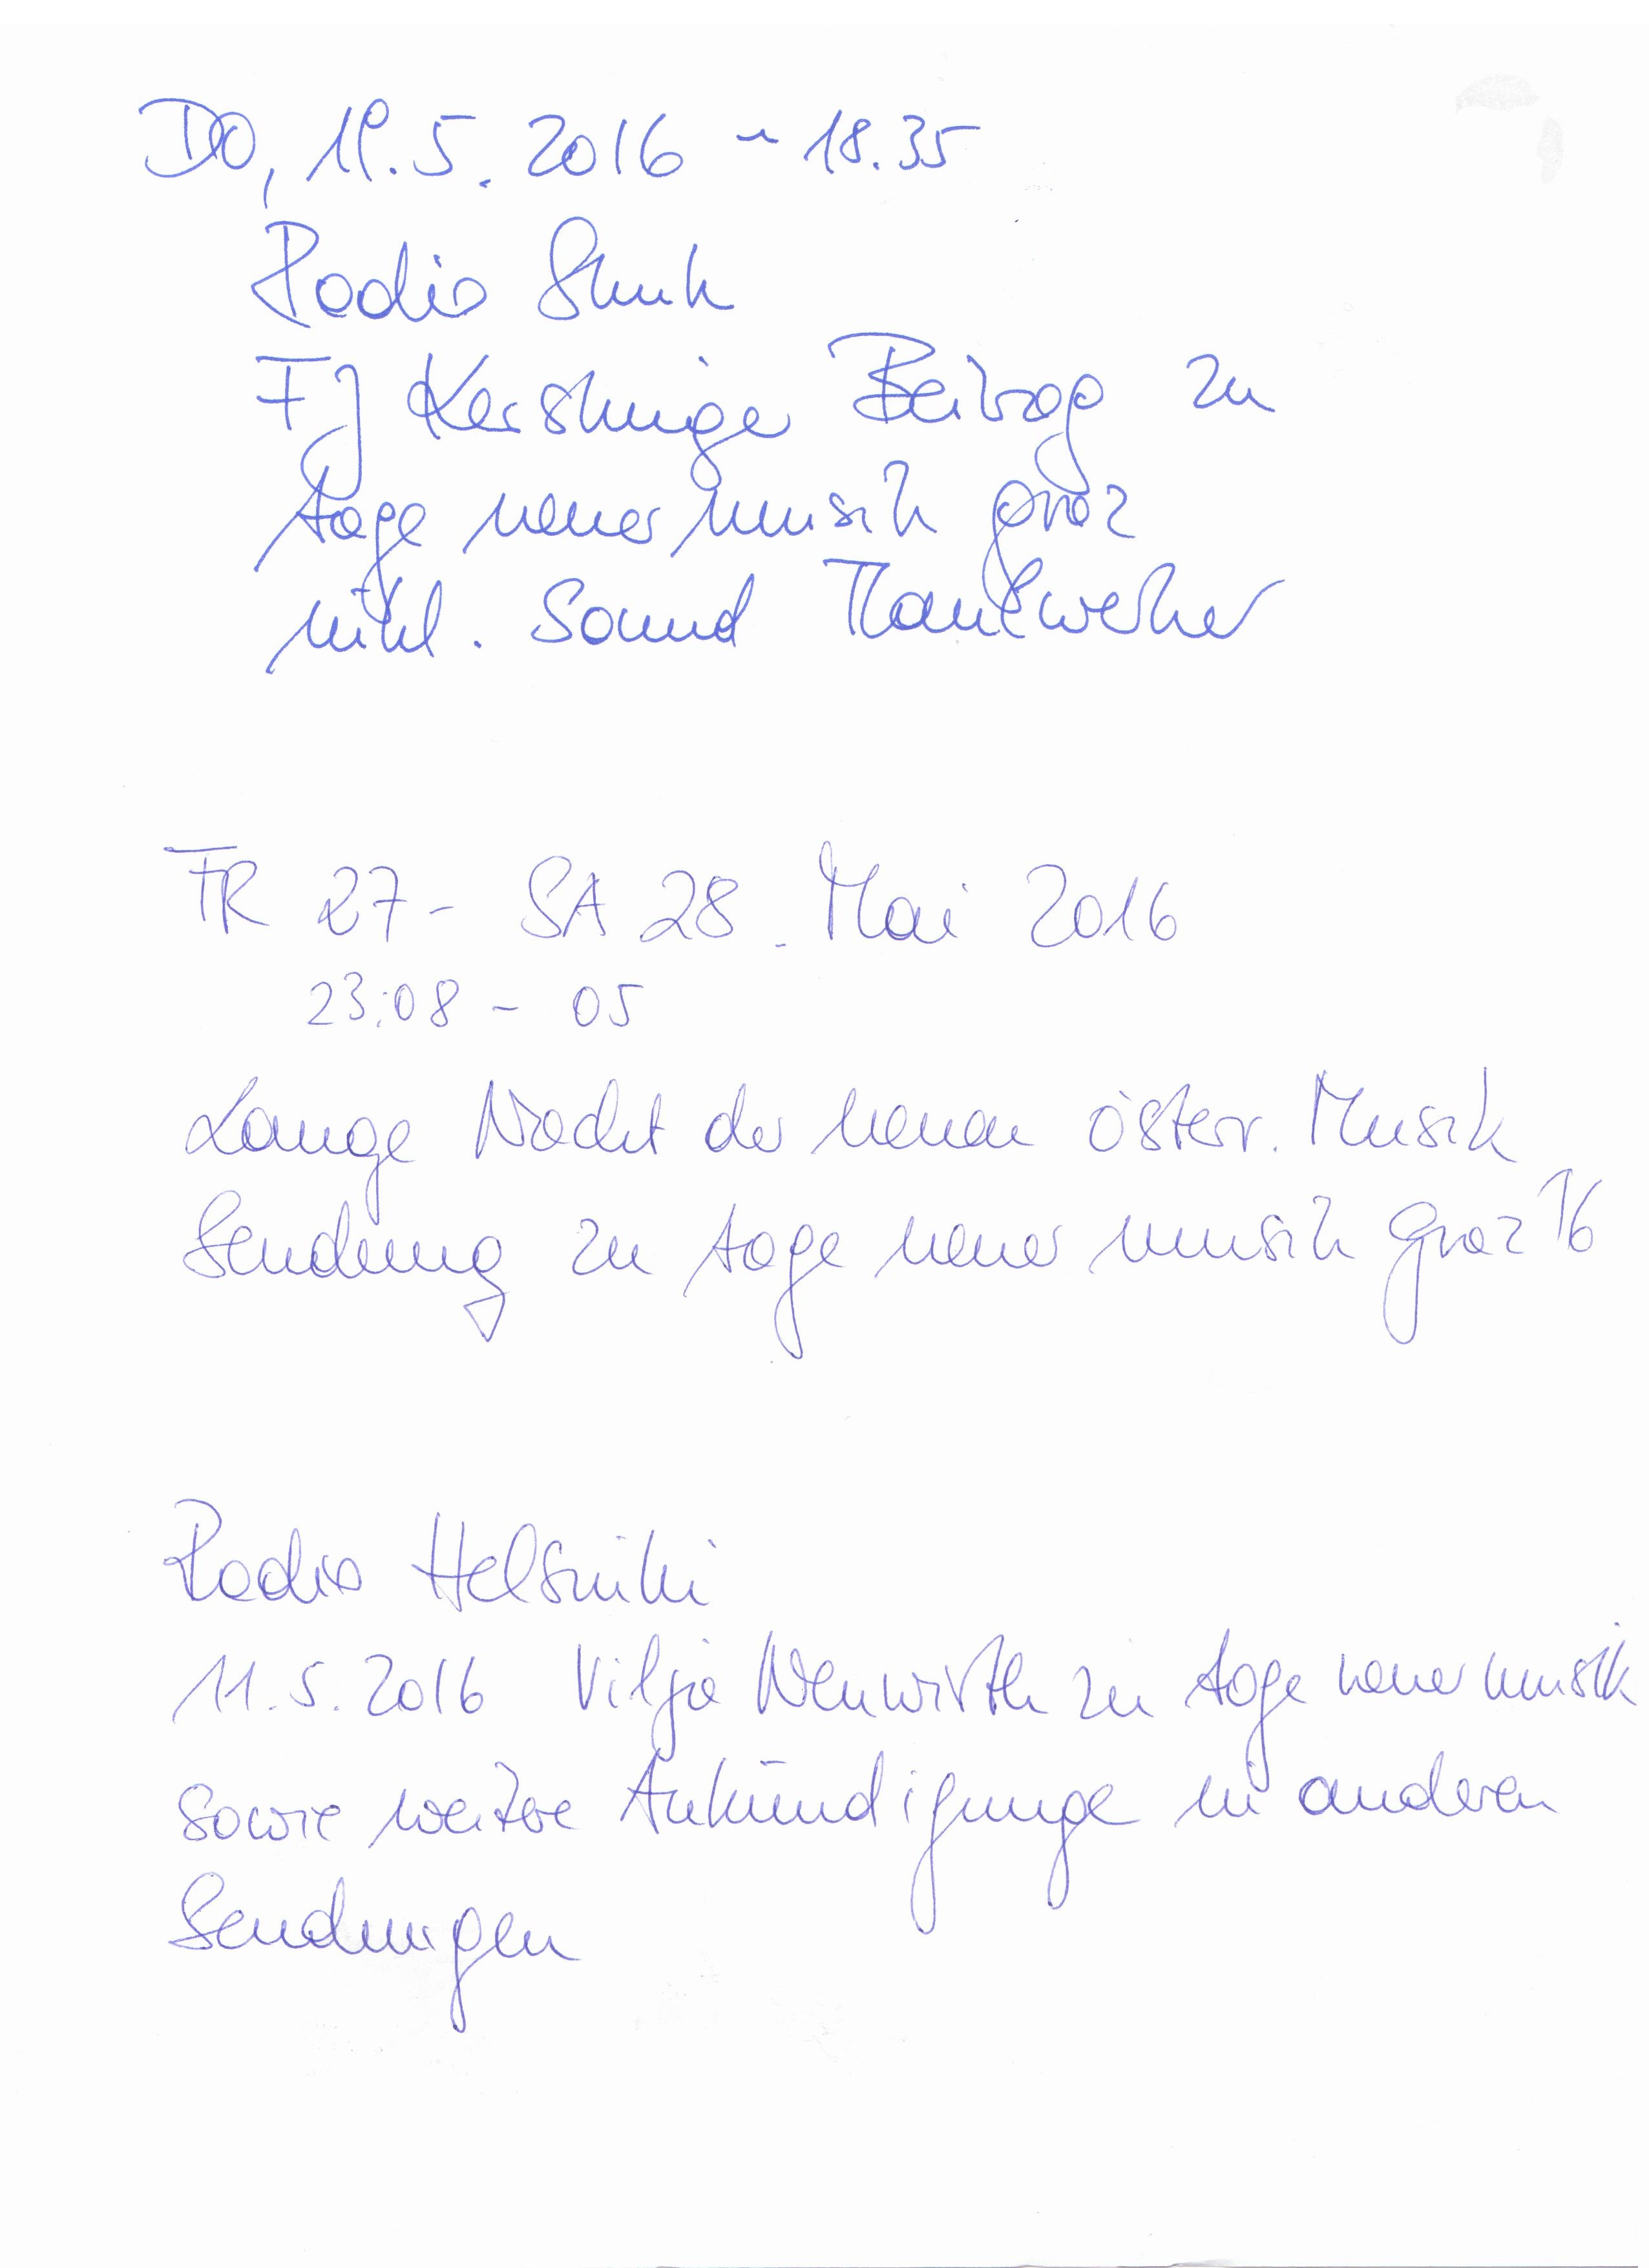 DO, 19.5.2016 ~ 18.35
Radio Stmk
FJ Kerstinger Beitrag zu
tage neuer musik graz
inkl. Sound
FR 27 - SA 28. Mai 2016
23:08 - 05
Lange Nacht der neuen österr. Musik
Sendung zu tage neuer musik graz 16
Radio Helsinki
11.5.2016 Vilja Neuwirth zu tage neuer musik
sowie weitere Ankündigunge in anderen
Sendungen